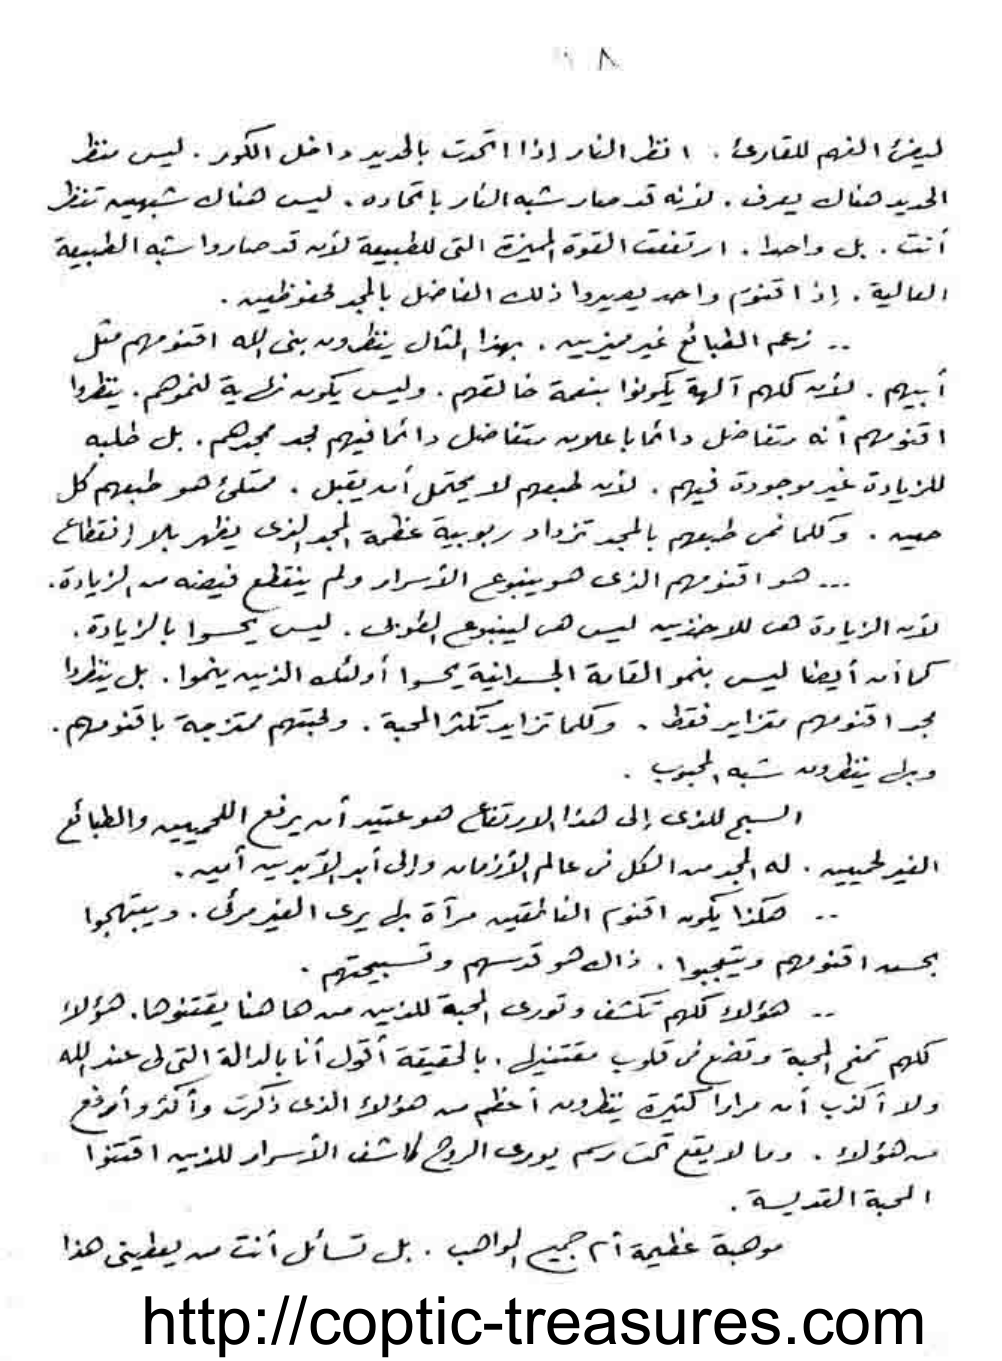 ٨
ليضئ الفهم للقارئ . انظر النار إذا اتحدت بالحديد داخل الكور . ليس منظر
الحديد هناك يعرف . لأنه قد صار شبه النار باتحاده . ليس هناك شبهين تنظر
أنت . بل واحدا . ارتفعت القوة المميزة التى للطبيعة لأن قد صاروا شبه الطبيعة
العالية . إذا قنوم واحد يصيروا ذلك الفاضل بالمجد محفوظين .
.. زعم الطبائع غير مميزين . بهذا المثال ينظرون بنى الله اقنومهم مثل
أبيهم . لأن كلهم آلهة يكونوا بنعمة خالقهم . وليس يكون نهاية لنموهم . ينظروا
اقنومهم أنه متفاضل دائما باعلان متفاضل دائما فيهم لجد مجدهم . بل طلبه
للزيادة غير موجودة فيهم . لأن طبعهم لا يحتمل أن يقبل . ممتلئ هو طبعهم كل
حين . وكلما نمى طبعهم بالمجد تزداد ربوبية عظمة المجد الذى يظهر بلا انقطاع
... هو اقنومهم الذى هو ينبوع الأسرار ولم ينقطع فيضه من الزيادة .
لأن الزيادة هى للاخذين ليس هى لينبوع الطوبى . ليس يحسوا بالزيادة .
كما أن أيضا ليس بنمو القامة الجسدانية يحسوا أولئك الذين ينموا . بل ينظروا
مجد اقنومهم متزايد فقط . وكلما تزايد تكثر المحبة . ومحبتهم ممتزجة باقنومهم .
وبها ينظرون شبه المحبوب .
السبح للذى إلى هذا الارتفاع هو عتيد أن يرفع اللحميين والطبائع
الغير لحميين . له المجد من الكل فى عالم الأزمان وإلى أبد الآبدين أمين .
.. هكذا يكون اقنوم الناطقين مرآة بها يرى الغير مرئى . ويبتهجوا
بحسن اقنومهم ويتعجبوا . ذاك هو قدسهم وتسبيحتهم .
.. هؤلاء كلهم تكشف وتورى المحبة للذين من ها هنا يقتنوها . هؤلاء
كلهم تمنح المحبة وتضع فى قلوب مقتنيها . بالحقيقة أقول أنا بالدالة التى لى عند الله
ولا أكذب أن مرارا كثيرة ينظرون أعظم من هؤلاء الذى ذكرت وأكثر وأرفع
من هؤلاء . وما لا يقع تحت رسم يورى الروح كاشف الأسرار للذين اقتنوا
المحبة القديسة .
موهبة عظيمة أم جميع المواهب . بل تسائل أنت من يعطينى هذا
http://coptic-treasures.com